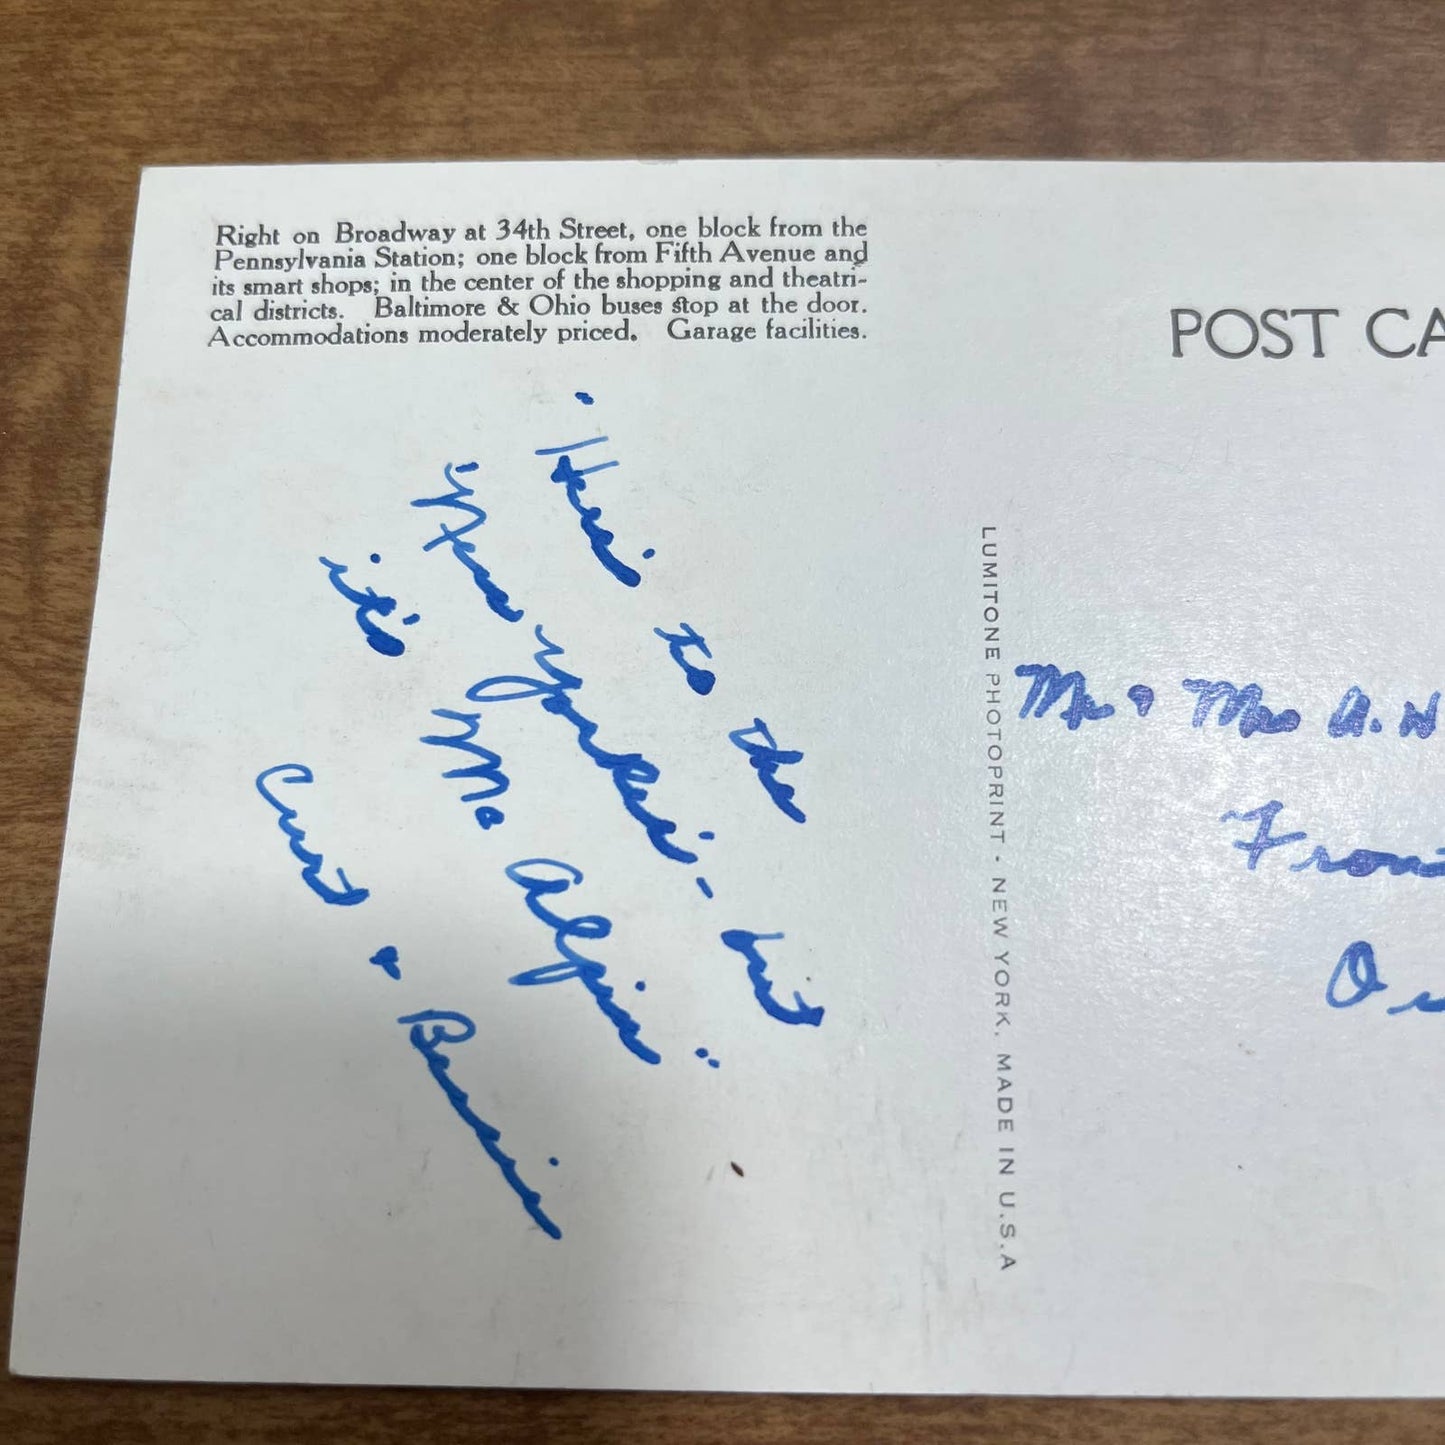 Right on Broadway at 34th Street, one block from the
Pennsylvania Station; one block from Fifth Avenue and
its smart shops; in the center of the shopping and theatri-
cal districts. Baltimore & Ohio buses stop at the door.
Accommodations moderately priced. Garage facilities.
POST CA
"Here's to the
"New Yorker"- but
it's Mc Alpin"
Curt & Bessie
LUMITONE PHOTOPRINT · NEW YORK, MADE IN U.S.A
Mr & Mrs A. H
Front